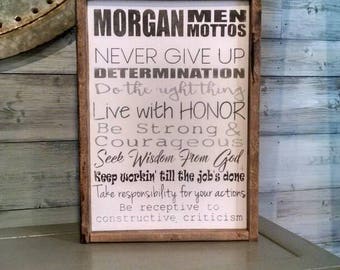 MORGAN MEN MOTTOS
NEVER GIVE UP
DETERMINATION
Do the right thing
Live with HONOR
Be Strong &
Courageous
Seek Wisdom From God
Keep workin' till the job's done
Take responsibility for your actions
Be receptive to
constructive criticism